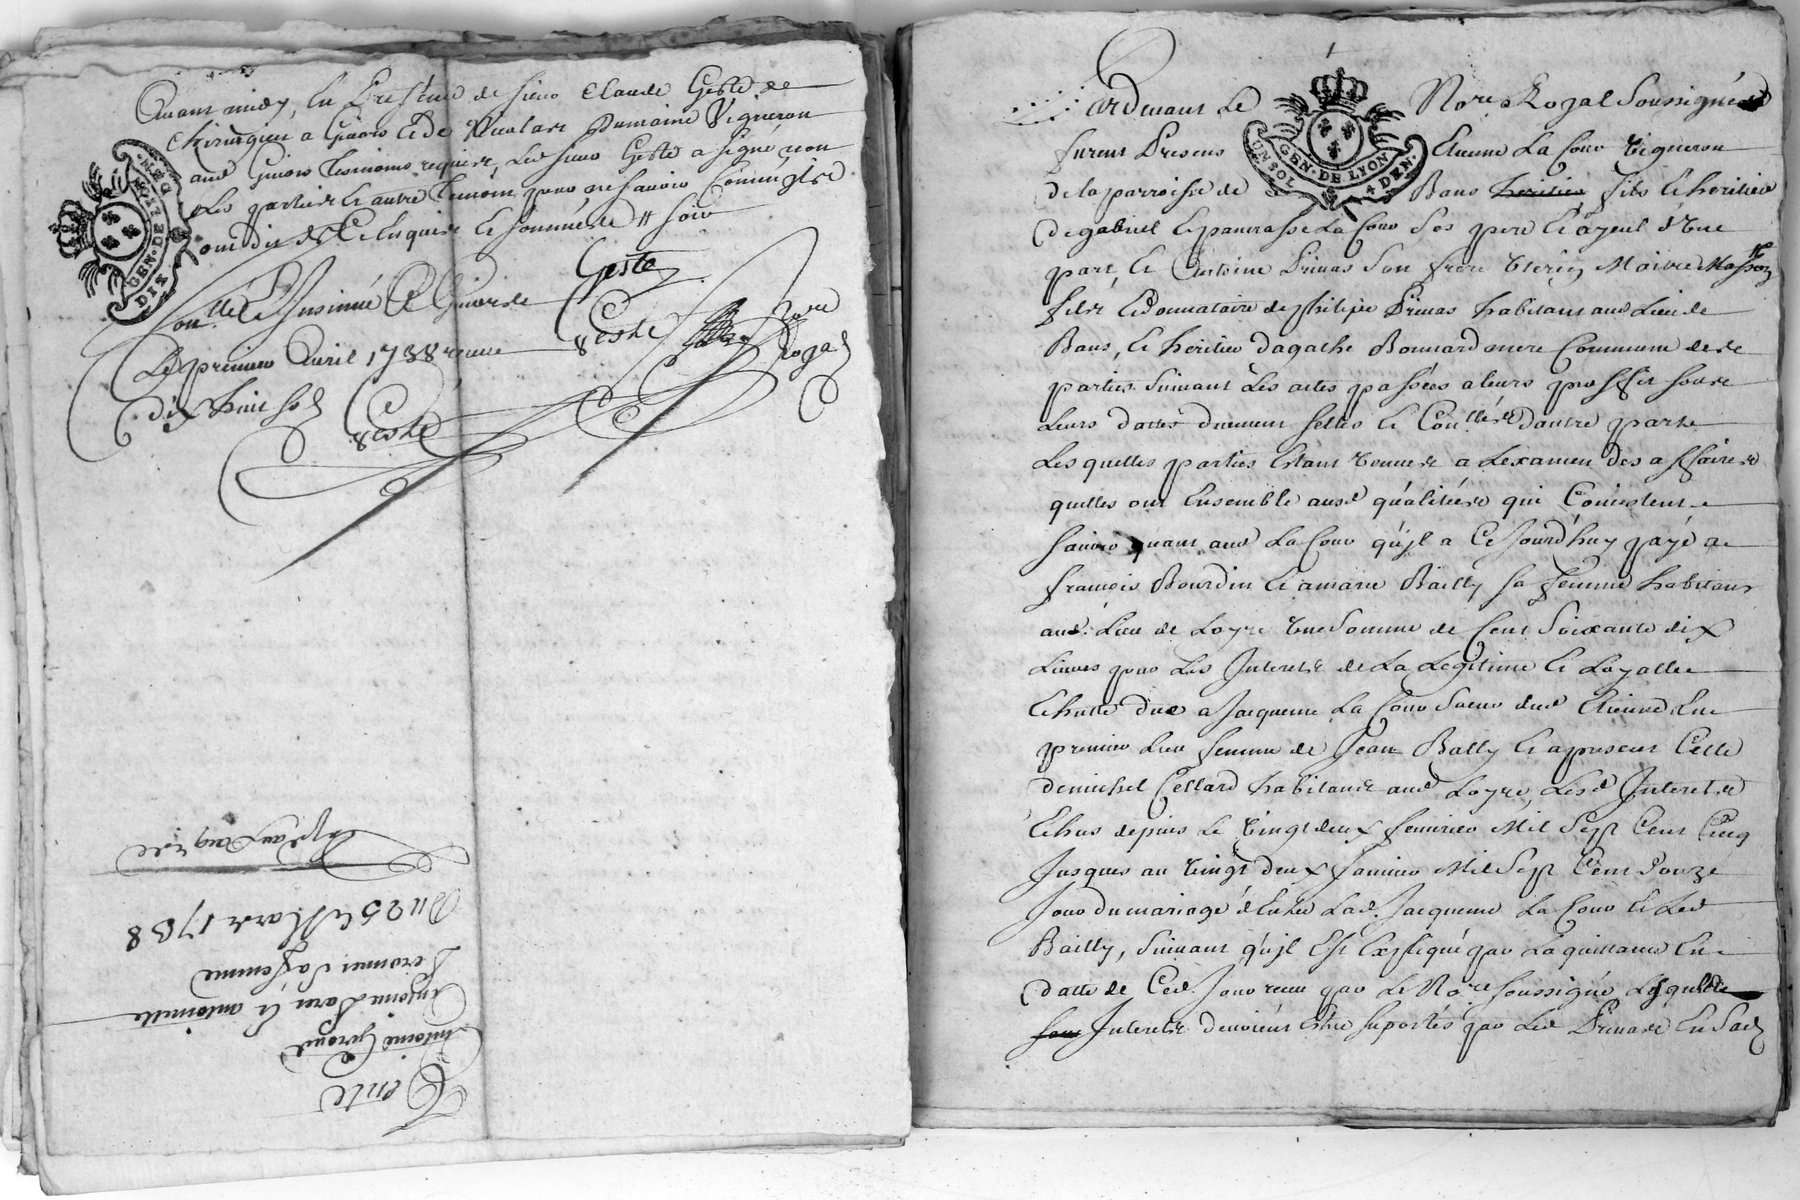 Avant midy, En Presence de sieur Claude Geste de
Chirurgien a Givors et de Nicolas Dumaine Vigneron
aud Givors Tesmoins requis, Led sieur Geste a signé non
Les parties et autre Temoin pour ne savoir
ont dit de ce Enquis et sommés soir
Geste
Con.llé et Insinué A Givors
Le premier Avril 1738 receu
dix huit sols
Geste
Geste
No.re Royal
GEN. DE LYON
DIX DEN.
Vente
Antoine
et antoinette
sa femme
Du 25e Mars 1738
Pardevant Le No.re Royal Soussigné
UN SOL GEN. DE LYON 4 DEN.
furent Presens Etienne La Cour Vigneron
de la parroisse de Bans heritier fils et heritier
de gabriel et pancrasse La Cour Ses pere et ayeul d'Une
part, et Antoine Primas Son frere Uterin Maitre Masson
fils et Donnataire de philipe Primas habitant aud Lieu de
Bans, et heritier dagathe Bonnard mere Commune desd
parties Suivant Les actes passées a leurs proffit sous
Leurs dattes duement scellés et Con.llés dautre part
Lesquelles parties Estant venues a Lexamen des affaires
quelles ont Ensemble ausd qualités qui Consistent
savoir quant aud La Cour qu'jl a Ce Jourd'huy payé a
francois Bourdin et a marie Bailly sa femme habitans
aud. Lieu de Loyre Une Somme de Cent Soixante dix
Livres pour Les Interets de La Legitime et Layalle
Echutte due a Jacqueme La Cour Soeur dud Etienne En
premier Lieu femme de Jean Bally et apresent Celle
de michel Cellard habitans aud Loyre, Lesd Interets
Echus depuis Le Vingt deux fevrier Mil Sept Cent Cinq
Jusques au Vingt deux Janvier Mil Sept Cent Douze
Jour du mariage d'Entre Lad. Jacqueme La Cour et Led
Bailly, Suivant qu'jl Est Expliqué par La quittance En
datte de Ced. Jour receue par Le No.re soussigné Lesquels
Interets devoient Estre suportés par Led Primas En Sad